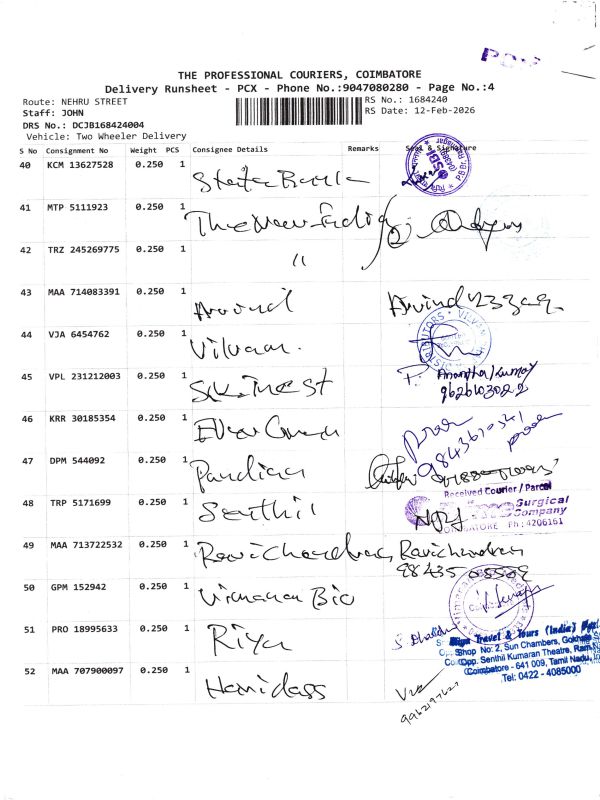 THE PROFESSIONAL COURIERS, COIMBATORE
Delivery Runsheet - PCX - Phone No.:9047080280 - Page No.:4
Route: NEHRU STREET
RS No.: 1684240
Staff: JOHN
RS Date: 12-Feb-2026
DRS No.: DCJB168424004
Vehicle: Two Wheeler Delivery
S No Consignment No Weight PCS Consignee Details Remarks Seal & Signature
40 KCM 13627528 0.250 1 State Bank
SBI
41 MTP 5111923 0.250 1 The New
42 TRZ 245269775 0.250 1 "
43 MAA 714083391 0.250 1 Arvind Arvind
44 VJA 6454762 0.250 1 Vilvam
DISTRIBUTORS VILVAM
45 VPL 231212003 0.250 1 S.K. Invest
P. Ananthakumar
9626103022
46 KRR 30185354 0.250 1
47 DPM 544092 0.250 1 Pandian
48 TRP 5171699 0.250 1 Senthil
Received Courier / Parcel
Surgical
Company
COIMBATORE Ph : 4206161
49 MAA 713722532 0.250 1 Ravichandran Ravichandran
98435 08509
50 GPM 152942 0.250 1 Bio
51 PRO 18995633 0.250 1 Riya
Riya Travel & Tours (India) Pvt.
Shop No: 2, Sun Chambers, Gokhale
Opp. Senthil Kumaran Theatre, Ram
Coimbatore - 641 009, Tamil Nadu,
Tel: 0422 - 4085000
52 MAA 707900097 0.250 1 Haridass